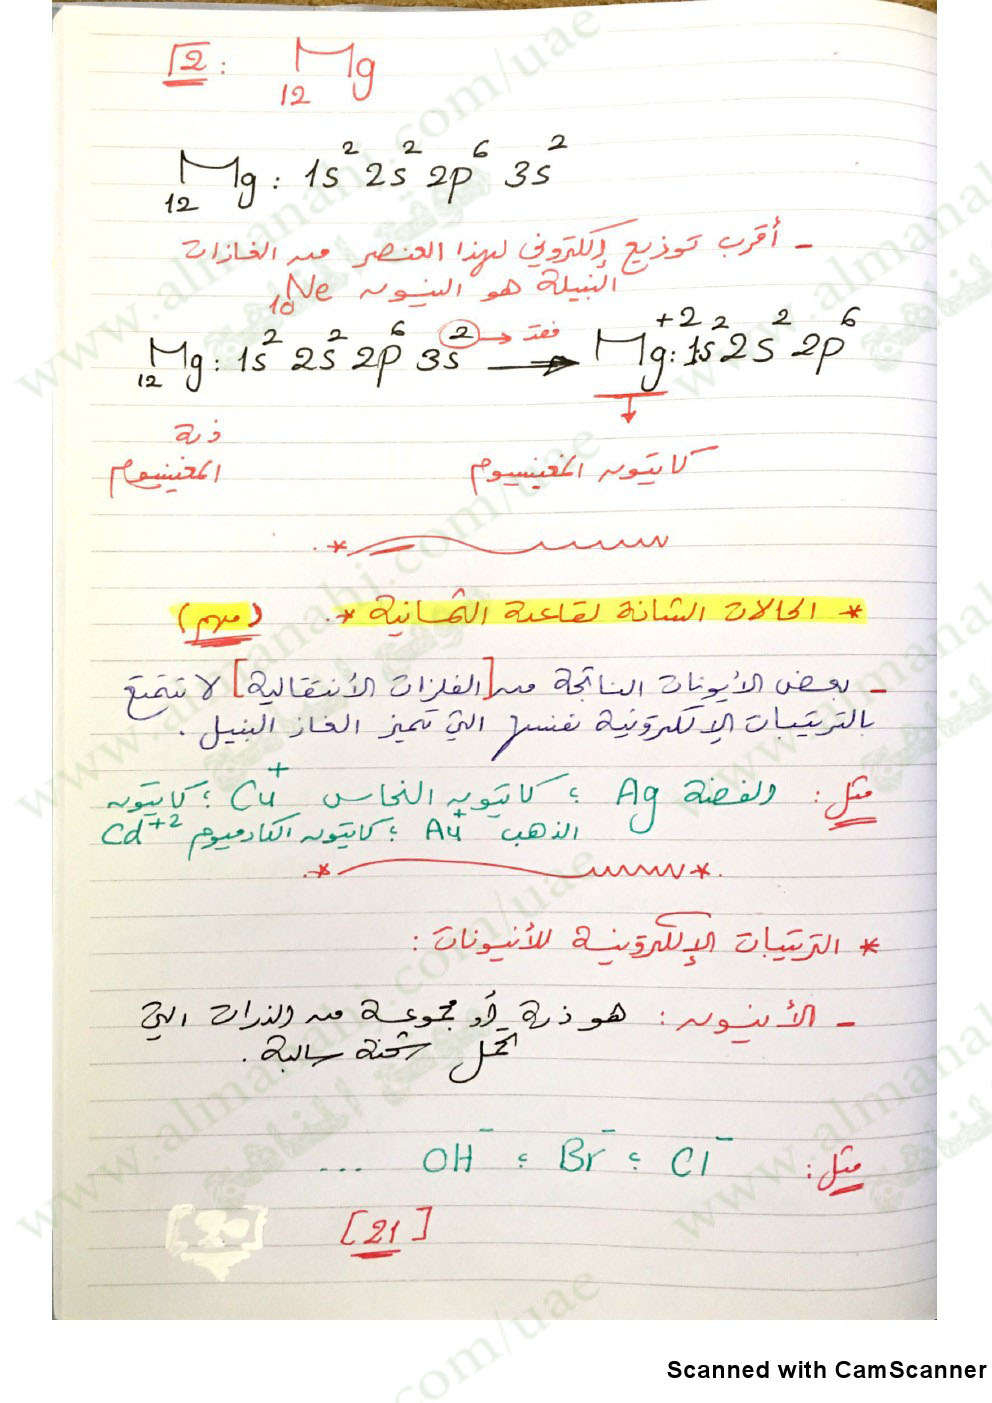 2 : ₁₂Mg
₁₂Mg : 1s² 2s² 2p⁶ 3s²
- أقرب توزيع إلكتروني لهذا العنصر من الغازات
النبيلة هو النيون ₁₀Ne
₁₂Mg : 1s² 2s² 2p⁶ 3s² → فقد → Mg⁺² : 1s² 2s² 2p⁶
ذرة
المغنيسيوم كاتيون المغنيسيوم
* الحالات الشاذة لقاعدة الثمانية * (مهم)
- بعض الأيونات الناتجة من [الفلزات الأنتقالية] لا تتمتع
بالترتيبات الإلكترونية نفسها التي تميز الغاز النبيل .
مثل : الفضة Ag ؛ كاتيون النحاس Cu⁺ ؛ كاتيون
الذهب Au⁺ ؛ كاتيون الكادميوم Cd⁺²
* الترتيبات الإلكترونية للأنيونات :
- الأنيون : هو ذرة أو مجموعة من الذرات التي
تحمل شحنة سالبة .
مثل : Cl⁻ ؛ Br⁻ ؛ OH⁻ ...
[21]
www.almanahj.com/uae
موقع المناهج
Scanned with CamScanner